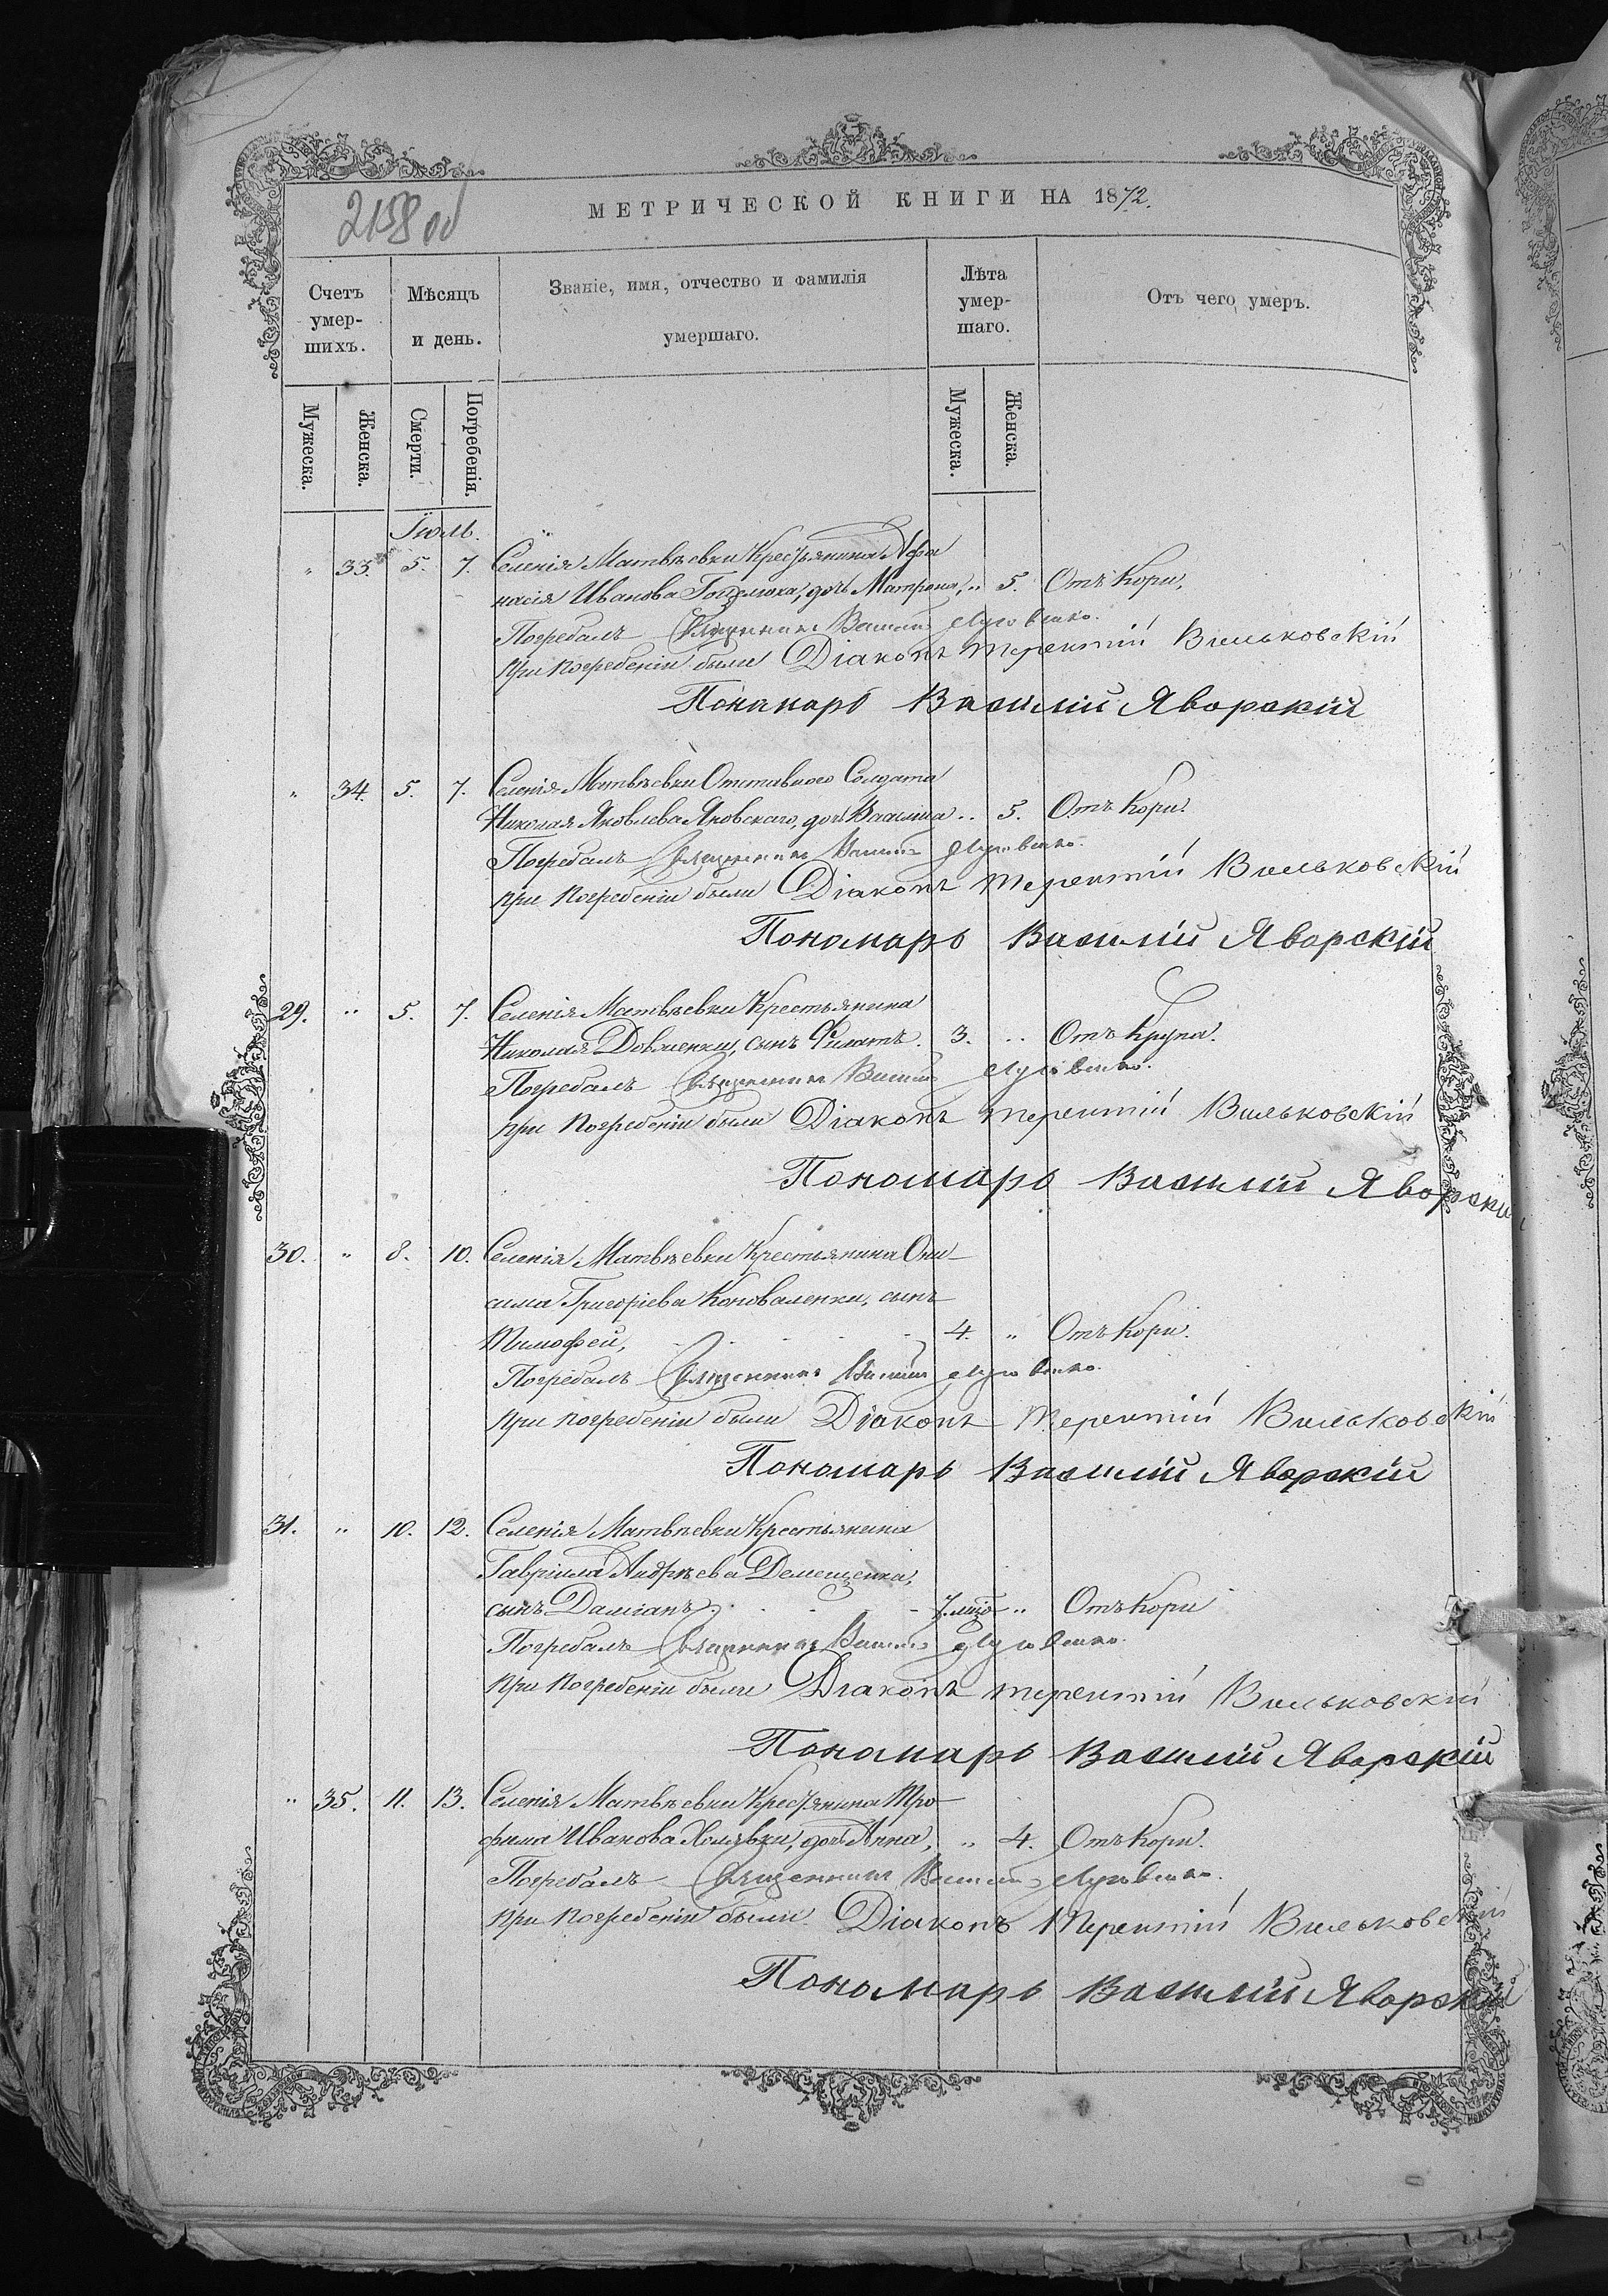 2158 об
МЕТРИЧЕСКОЙ КНИГИ НА 1872.
Счетъ умер-шихъ.
Мѣсяцъ и день.
Званіе, имя, отчество и фамилія умершаго.
Лѣта умер-шаго.
Отъ чего умеръ.
Мужеска.
Женска.
Смерти.
Погребенія.
Мужеска.
Женска.
Іюль.
" 33. 5. 7. Селенія Матвѣевки Крестьянина Афа
насія Иванова дочь Матрона, " 5. Отъ Кори.
Погребалъ Священникъ Василій
при погребеніи были Діаконъ Терентій Вильковскій
Пономарь Василій Яворскій
" 34. 5. 7. Селенія Матвѣевки Отставного Солдата
Николая Яковлева Яновскаго, дочь Васса " 5. Отъ Кори.
Погребалъ Священникъ Василій
при Погребеніи были Діаконъ Терентій Вильковскій
Пономарь Василій Яворскій
29. " 5. 7. Селенія Матвѣевки Крестьянина
Николая Довженки, сынъ Филатъ. 3. " Отъ Крупа.
Погребалъ Священникъ Василій
при Погребеніи были Діаконъ Терентій Вильковскій
Пономарь Василій Яворскій
30. " 8. 10. Селенія Матвѣевки Крестьянина Они-
сима Григоріева Коноваленки, сынъ
Тимофей, 4. " Отъ Кори.
Погребалъ Священникъ Василій
при погребеніи были Діаконъ Терентій Вильковскій
Пономарь Василій Яворскій
31. " 10. 12. Селенія Матвѣевки Крестьянина
Гавріила Андрѣева Демещенка,
сынъ Даміанъ. 7. " Отъ Кори
Погребалъ Священникъ Василій
при Погребеніи были Діаконъ Терентій Вильковскій
Пономарь Василій Яворскій
" 35. 11. 13. Селенія Матвѣевки Крестьянина Тро-
фима Иванова Холявки, дочь Анна, " 4. Отъ Кори.
Погребалъ Священникъ Василій
при Погребеніи были Діаконъ Терентій Вильковскій
Пономарь Василій Яворскій